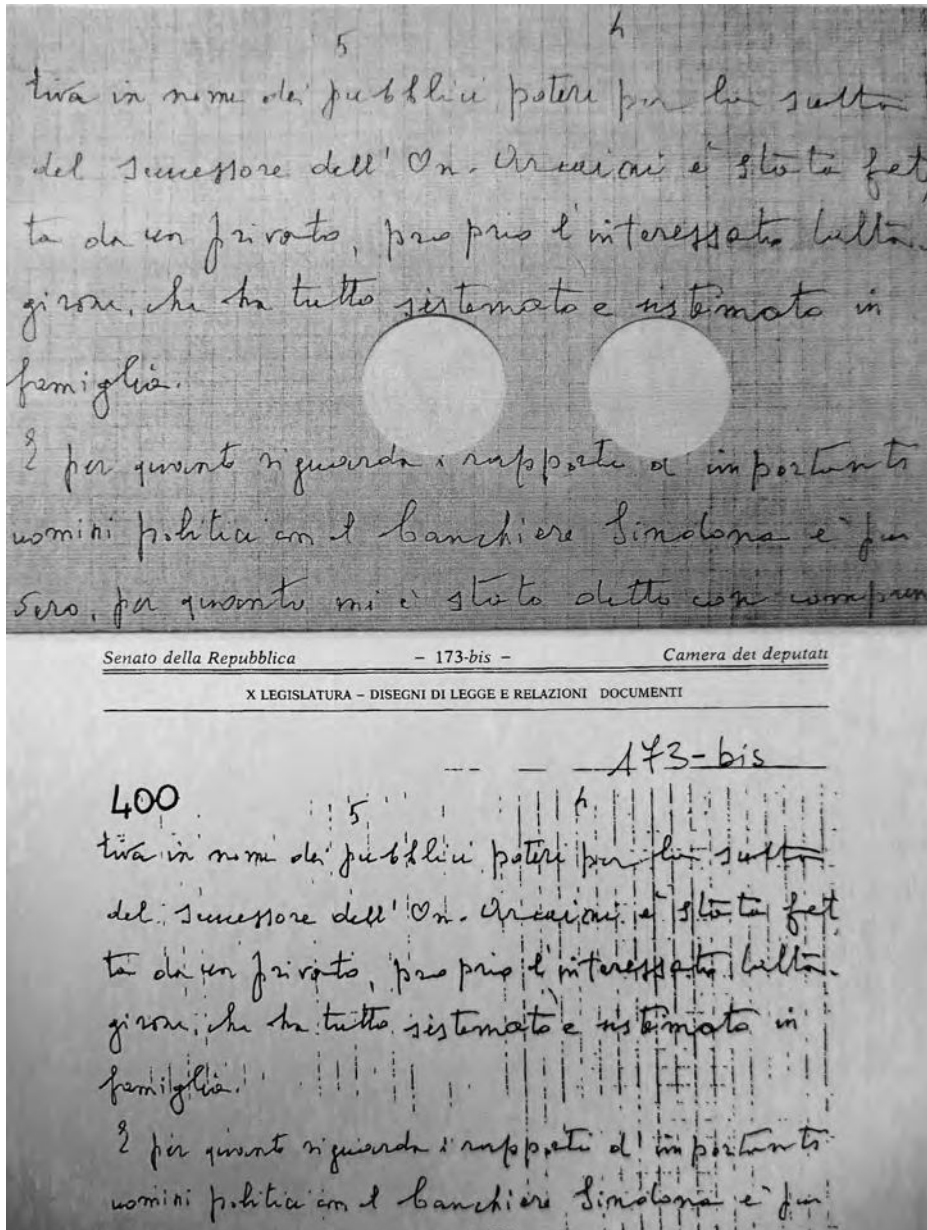 5 4
tiva in nome dei pubblici poteri per la scelta
del successore dell'On. Arcaini è stata fat
ta da un privato, proprio l'interessato Calta-
girone, che ha tutto sistemato e risistemato in
famiglia.
E per quanto riguarda i rapporti d'importanti
uomini politici con il banchiere Sindona è pur
vero, per quanto mi è stato detto con compren
Senato della Repubblica – 173-bis – Camera dei deputati
X LEGISLATURA – DISEGNI DI LEGGE E RELAZIONI DOCUMENTI
173-bis
400
5 4
tiva in nome dei pubblici poteri per la scelta
del successore dell'On. Arcaini è stata fat
ta da un privato, proprio l'interessato Calta-
girone, che ha tutto sistemato e risistemato in
famiglia.
E per quanto riguarda i rapporti d'importanti
uomini politici con il banchiere Sindona è pur